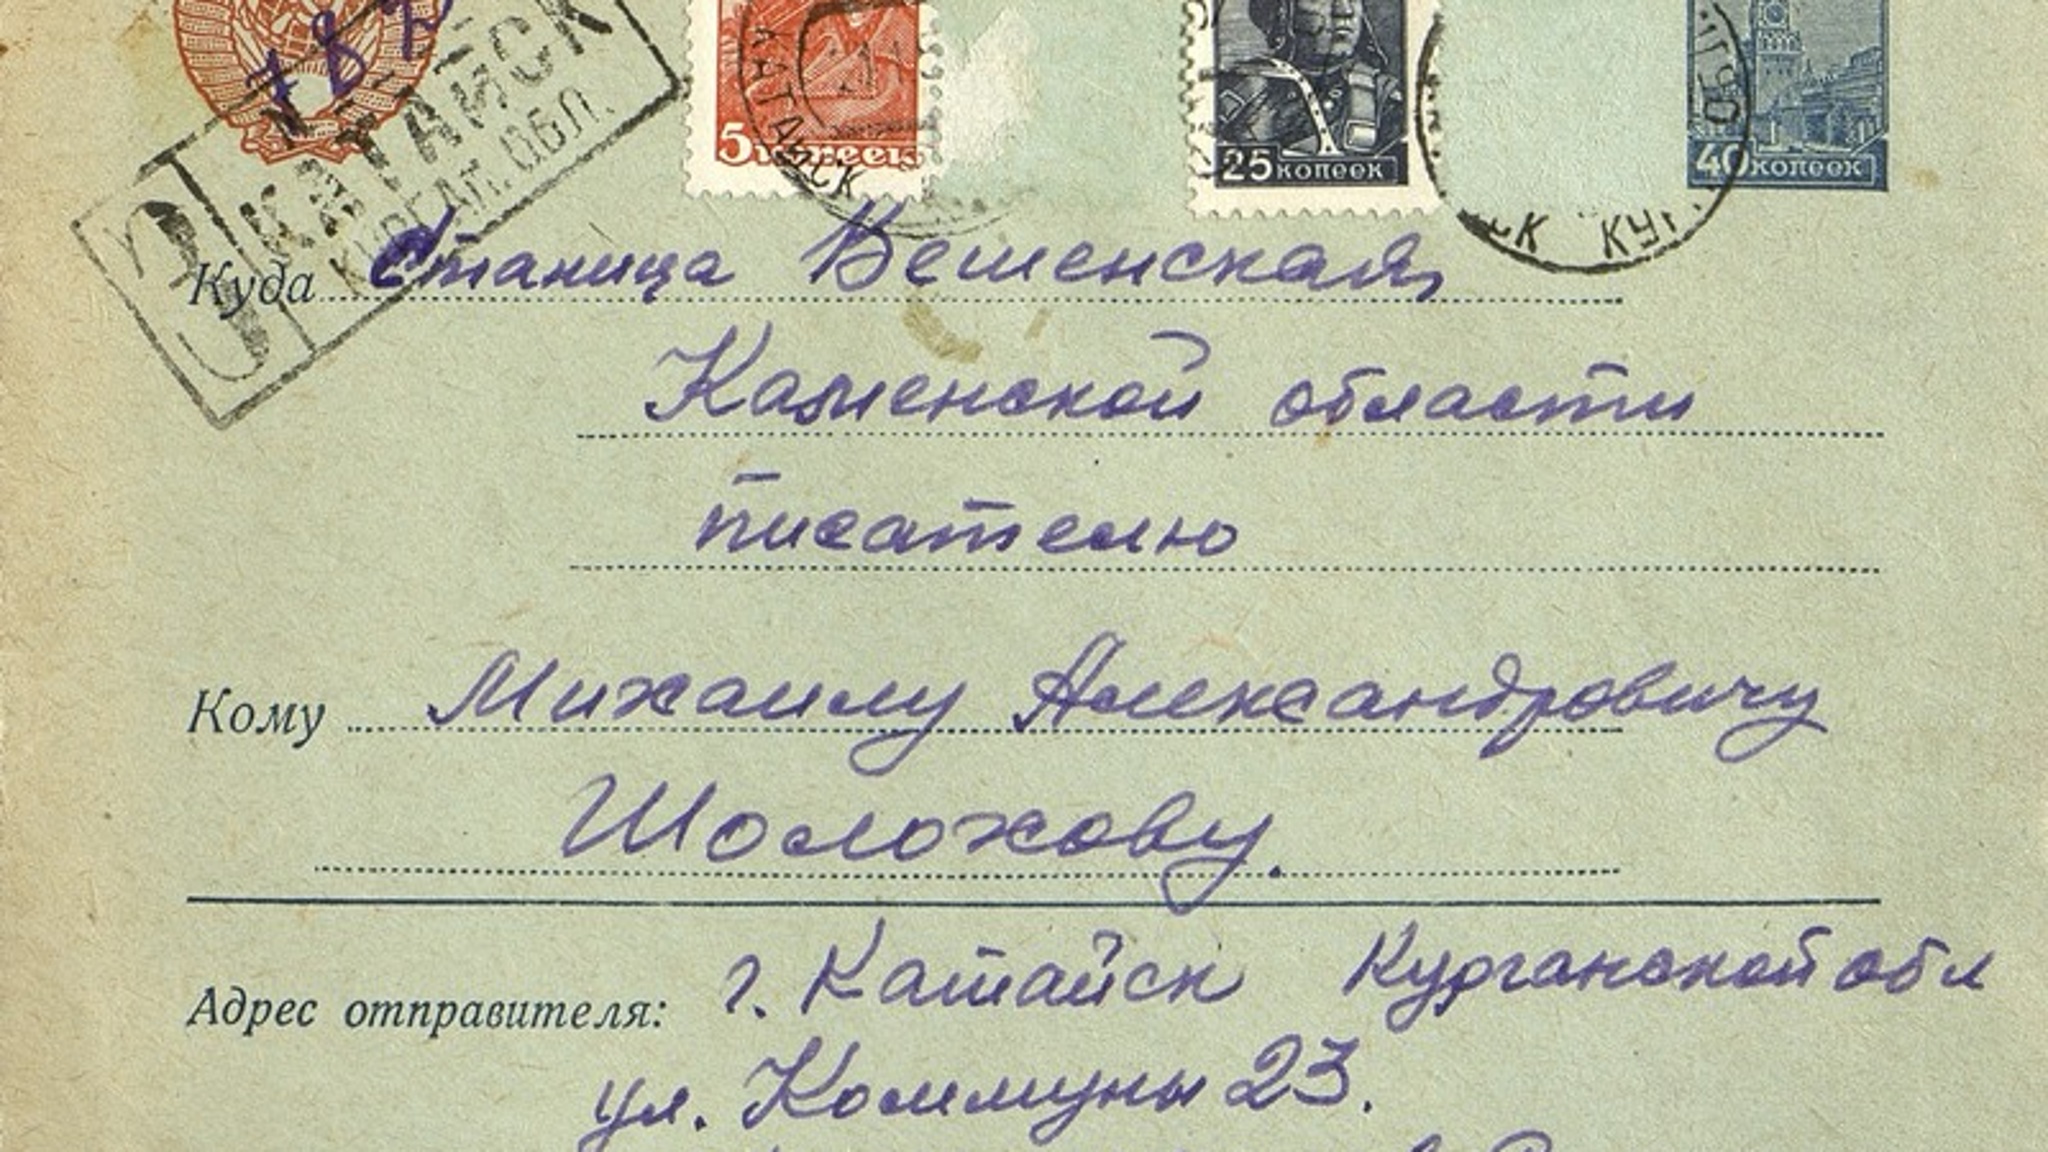 787
З КАТАЙСК
КУРГАН. ОБЛ.
5 копеек
КАТАЙСК
25 копеек
40 копеек
Куда Станица Вешенская,
Каменской области
писателю
Кому Михаилу Александровичу
Шолохову.
Адрес отправителя: г. Катайск Курганской обл
ул. Коммуны 23.